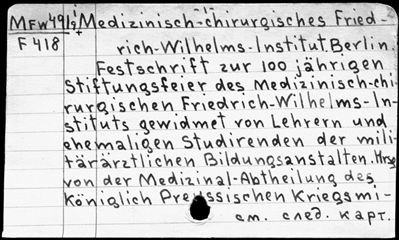 MFW49/9 Medizinisch-chirurgisches Fried-
F 418
rich-Wilhelms-Institut, Berlin.
Festschrift zur 100 jährigen
Stiftungsfeier des Medizinisch-chi-
rurgischen Friedrich-Wilhelms-In-
stituts gewidmet von Lehrern und
ehemaligen Studirenden der mili-
tärärztlichen Bildungsanstalten. Hrsg.
von der Medizinal-Abtheilung des
Königlich Preussischen Kriegsmi-
см. след. карт.